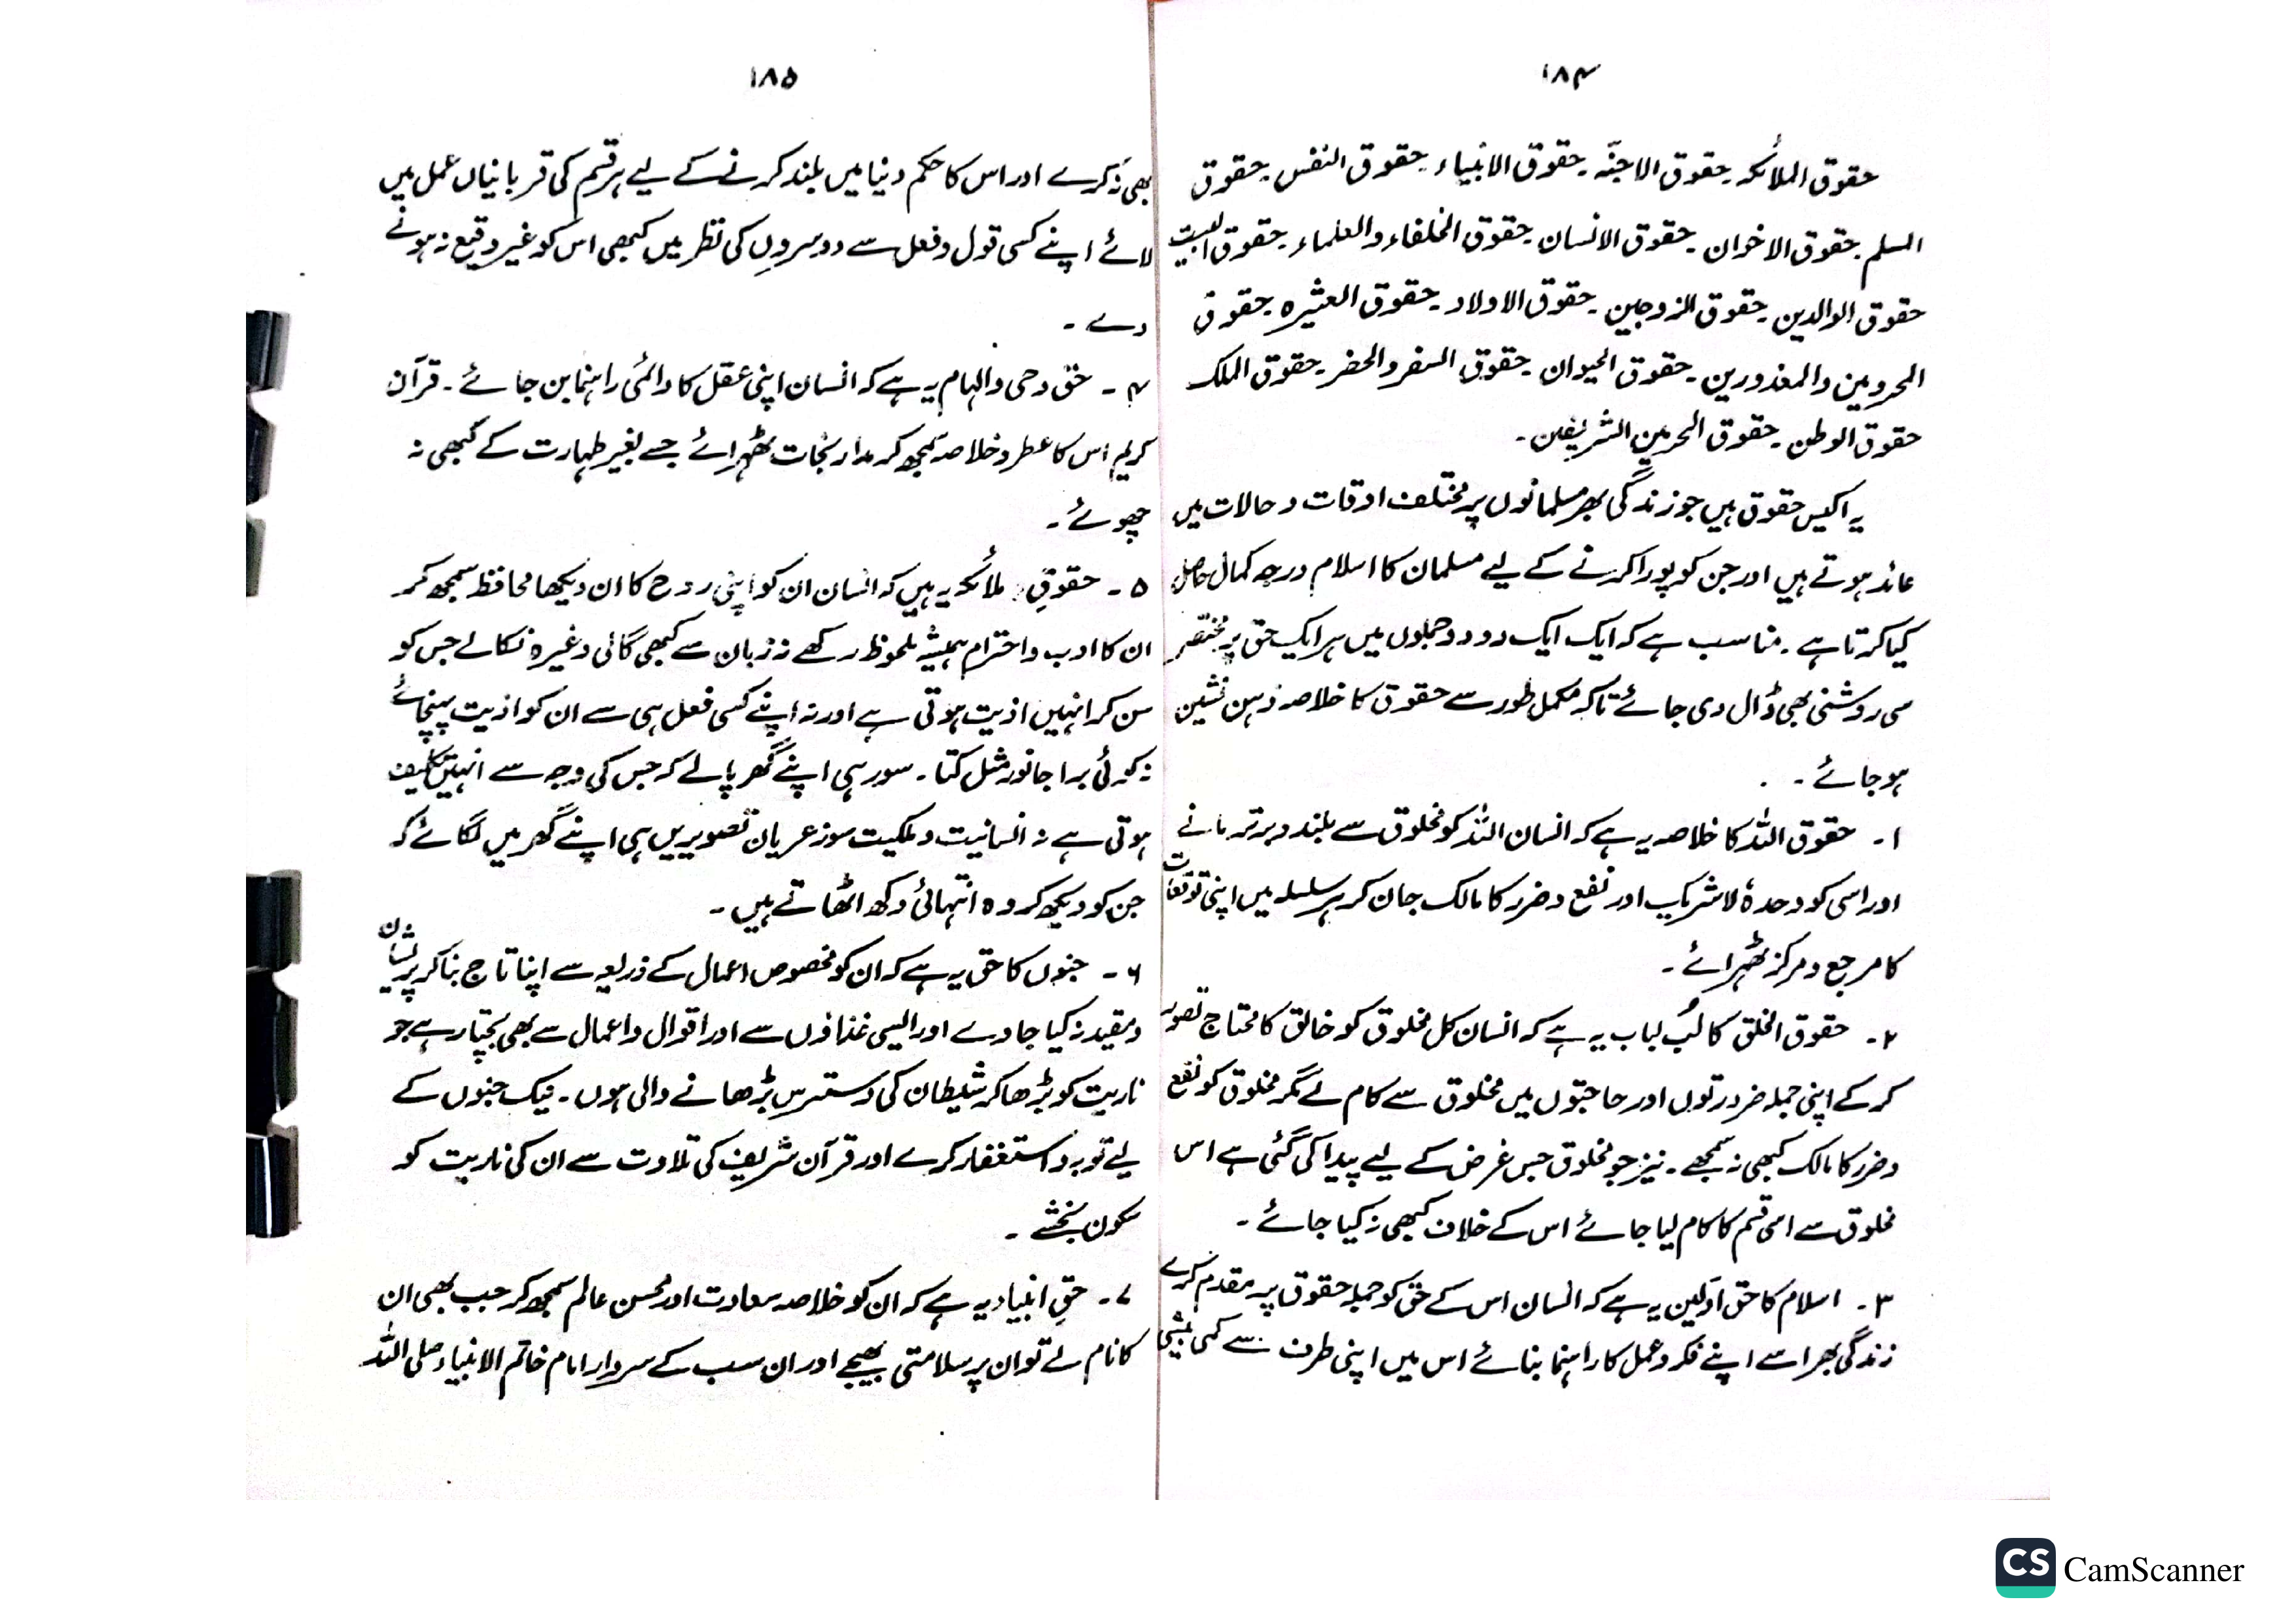 ۱۸۴
حقوق الملائکہ۔ حقوق الاجنّہ۔ حقوق الانبیاء۔ حقوق النفس۔ حقوق
المسلم۔ حقوق الاخوان۔ حقوق الانسان۔ حقوق الخلفاء والعلماء۔ حقوق البیت
حقوق الوالدین۔ حقوق الزوجین۔ حقوق الاولاد۔ حقوق العشیرہ۔ حقوق
المحرومین والمعذورین۔ حقوق الحیوان۔ حقوق السفر والحضر۔ حقوق الملک
حقوق الوطن۔ حقوق الحرمین الشریفین۔
یہ اکیس حقوق ہیں جو زندگی بھر مسلمانوں پر مختلف اوقات و حالات میں
عائد ہوتے ہیں اور جن کو پورا کرنے کے لیے مسلمان کا اسلام درجہ کمال حاصل
کیا کرتا ہے۔ مناسب ہے کہ ایک ایک دو دو جملوں میں ہر ایک حق پر مختصر
سی روشنی بھی ڈال دی جائے تاکہ مکمل طور سے حقوق کا خلاصہ ذہن نشین
ہو جائے۔
۱۔ حقوق اللہ کا خلاصہ یہ ہے کہ انسان اللہ کو مخلوق سے بلند و برتر مانے
اور اسی کو وحدہٗ لاشریک اور نفع و ضرر کا مالک جان کر ہر سلسلہ میں اپنی توقعات
کا مرجع و مرکز ٹھہرائے۔
۲۔ حقوق الخلق کا لُب لباب یہ ہے کہ انسان کل مخلوق کو خالق کا محتاج تصور
کر کے اپنی جملہ ضرورتوں اور حاجتوں میں مخلوق سے کام لے مگر مخلوق کو نفع
و ضرر کا مالک کبھی نہ سمجھے۔ نیز جو مخلوق جس غرض کے لیے پیدا کی گئی ہے اس
مخلوق سے اسی قسم کا کام لیا جائے اس کے خلاف کبھی نہ کیا جائے۔
۳۔ اسلام کا حق اوّلین یہ ہے کہ انسان اس کے حق کو جملہ حقوق پر مقدم کرے
زندگی بھر اسے اپنے فکر و عمل کا راہنما بنائے اس میں اپنی طرف سے کمی بیشی
۱۸۵
بھی نہ کرے اور اس کا حکم دنیا میں بلند کرنے کے لیے ہر قسم کی قربانیاں عمل میں
لائے اپنے کسی قول و فعل سے دوسروں کی نظر میں کبھی اس کو غیر وقیع نہ ہونے
دے۔
۴۔ حق وحی والہام یہ ہے کہ انسان اپنی عقل کا دائمی راہنما بن جائے۔ قرآن
کریم اس کا عطر و خلاصہ سمجھ کر مدار نجات ٹھہرائے جسے بغیر طہارت کے کبھی نہ
چھوئے۔
۵۔ حقوقِ ملائکہ یہ ہیں کہ انسان ان کو اپنی روح کا ان دیکھا محافظ سمجھ کر
ان کا ادب و احترام ہمیشہ ملحوظ رکھے نہ زبان سے کبھی گالی وغیرہ نکالے جس کو
سن کر انہیں اذیت ہوتی ہے اور نہ اپنے کسی فعل ہی سے ان کو اذیت پہنچائے
نہ کوئی برا جانور مثل کتا۔ سور ہی اپنے گھر پالے کہ جس کی وجہ سے انہیں تکلیف
ہوتی ہے نہ انسانیت و ملکیت سوز عریان تصویریں ہی اپنے گھر میں لگائے کہ
جن کو دیکھ کر وہ انتہائی دکھ اٹھاتے ہیں۔
۶۔ جنوں کا حق یہ ہے کہ ان کو مخصوص اعمال کے ذریعہ سے اپنا تاج بنا کر پریشان
و مقید نہ کیا جاوے اور ایسی غذاؤں سے اور اقوال و اعمال سے بھی بچتا رہے جو
ناریت کو بڑھا کر شیطان کی دسترس بڑھانے والی ہوں۔ نیک جنوں کے
لیے توبہ و استغفار کرے اور قرآن شریف کی تلاوت سے ان کی ناریت کو
سکون بخشے۔
۷۔ حقِ انبیاء یہ ہے کہ ان کو خلاصہ سعادت اور محسن عالم سمجھ کر جب بھی ان
کا نام لے تو ان پر سلامتی بھیجے اور ان سب کے سردار امام خاتم الانبیاء صلی اللہ
CS CamScanner